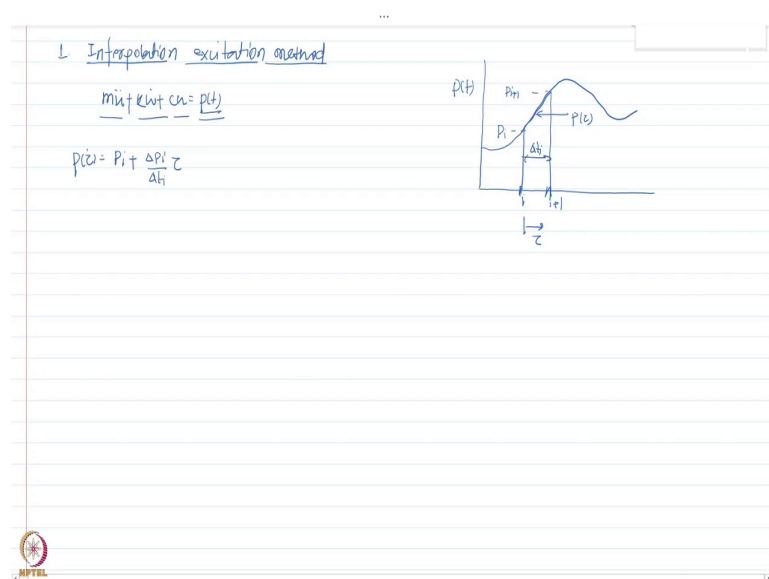 1 Interpolation excitation method
mü + ku̇ + cu = p(t)
p(τ) = Pi + ΔPi/Δti τ
p(t)
Pi+1
p(τ)
Pi
Δti
i i+1
τ
NPTEL